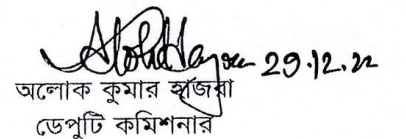 29.12.22
অলোক কুমার হাজরা
ডেপুটি কমিশনার